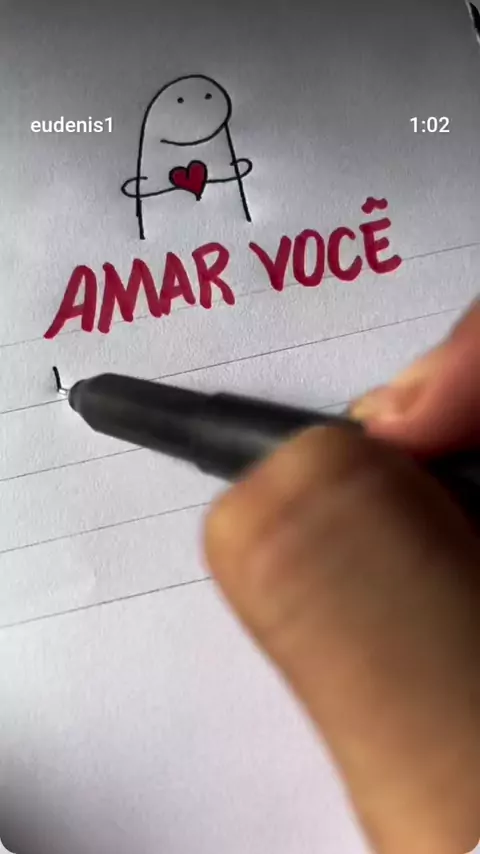 eudenis1 1:02
AMAR VOCÊ